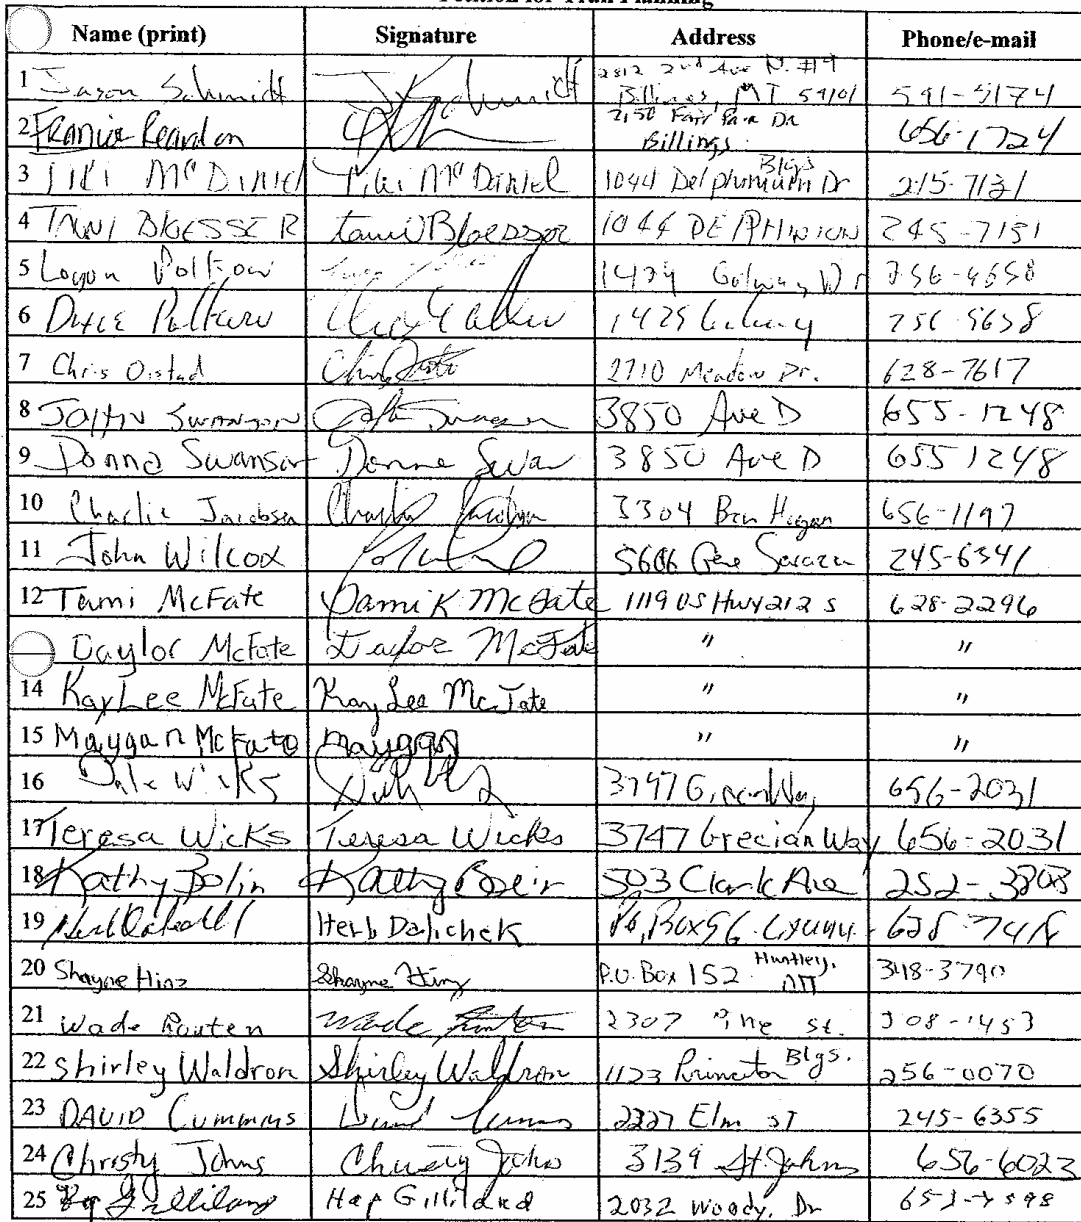 Petition for Trail Planning
Name (print) Signature Address Phone/e-mail
1 Jason Schmidt J K Schmidt 2812 2nd Ave N. #9 Billings, MT 59101 591-5174
2 Francie Reardon 2150 Fair Park Dr Billings 656-1724
3 Tiki McDiniel Tiki McDaniel 1044 Delphinium Dr Blgs 215-7131
4 TAMI BlOESSER tami Bloesser 1044 DELPHINION 245-7151
5 Logan 1429 Galway Dr 756-4658
6 1429 Galway 756-5658
7 Chris Oistad Chris 2710 Meadow Dr. 628-7617
8 John Swanson John Swanson 3850 Ave D 655-1248
9 Donna Swanson Donna Swan 3850 Ave D 655 1248
10 Charlie Jacobsen Charlie Jacobsen 3304 Ben Hogan 656-1197
11 John Wilcox 5606 Gene Sarazen 245-6341
12 Tami McFate Tami K McFate 1119 US Hwy 212 S 628-2296
Taylor McFate Taylor McFate " "
14 KayLee McFate Kay Lee McFate " "
15 Maygan McFate maygan " "
16 Dale Wicks 3747 Grecian Way 656-2031
17 Teresa Wicks Teresa Wicks 3747 Grecian Way 656-2031
18 Kathy Bolin Kathy Bolin 503 Clark Ave 252-3803
19 Herb Dalichek P.O. Box 56
20 Shayne Hinz Shayne Hinz P.O. Box 152 Huntley, MT 348-3790
21 Wade Rauten Wade 2307 Pine st. 308-1453
22 Shirley Waldron Shirley Waldron 1123 Princeton Blgs. 256-0070
23 DAVID Cummins David 2227 Elm ST 245-6355
24 Christy Johns Christy Johns 3139 St. Johns 656-6023
25 Hap Gilliland 2032 Woody Dr